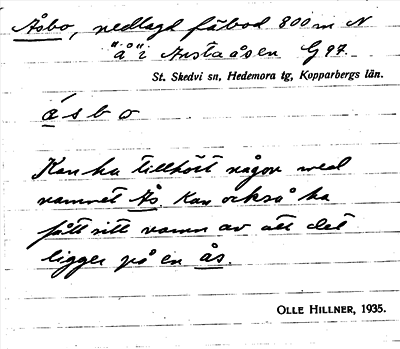 Åsbo, nedlagd fäbod 800 m N
"å" i Anstaåsen G 97.
St. Skedvi sn, Hedemora tg, Kopparbergs län.
ǻsbo
Kan ha tillhört någon med
namnet Ås. Kan också ha
fått sitt namn av att det
ligger på en ås.
OLLE HILLNER, 1935.